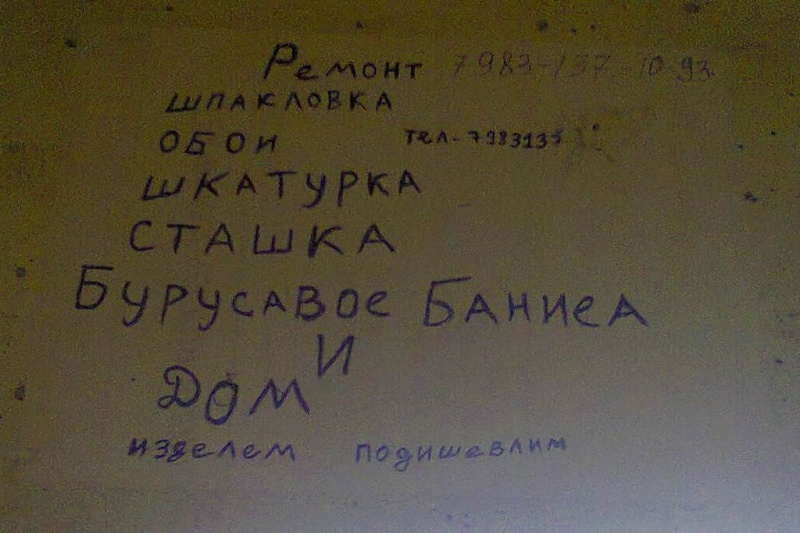 Ремонт 7983-137-10-93
ШПАКЛОВКА
ОБОИ тел-7983137
ШКАТУРКА
СТАШКА
БУРУСАВОЕ БАНИЕА
И
ДОМ
изделем подишевлим